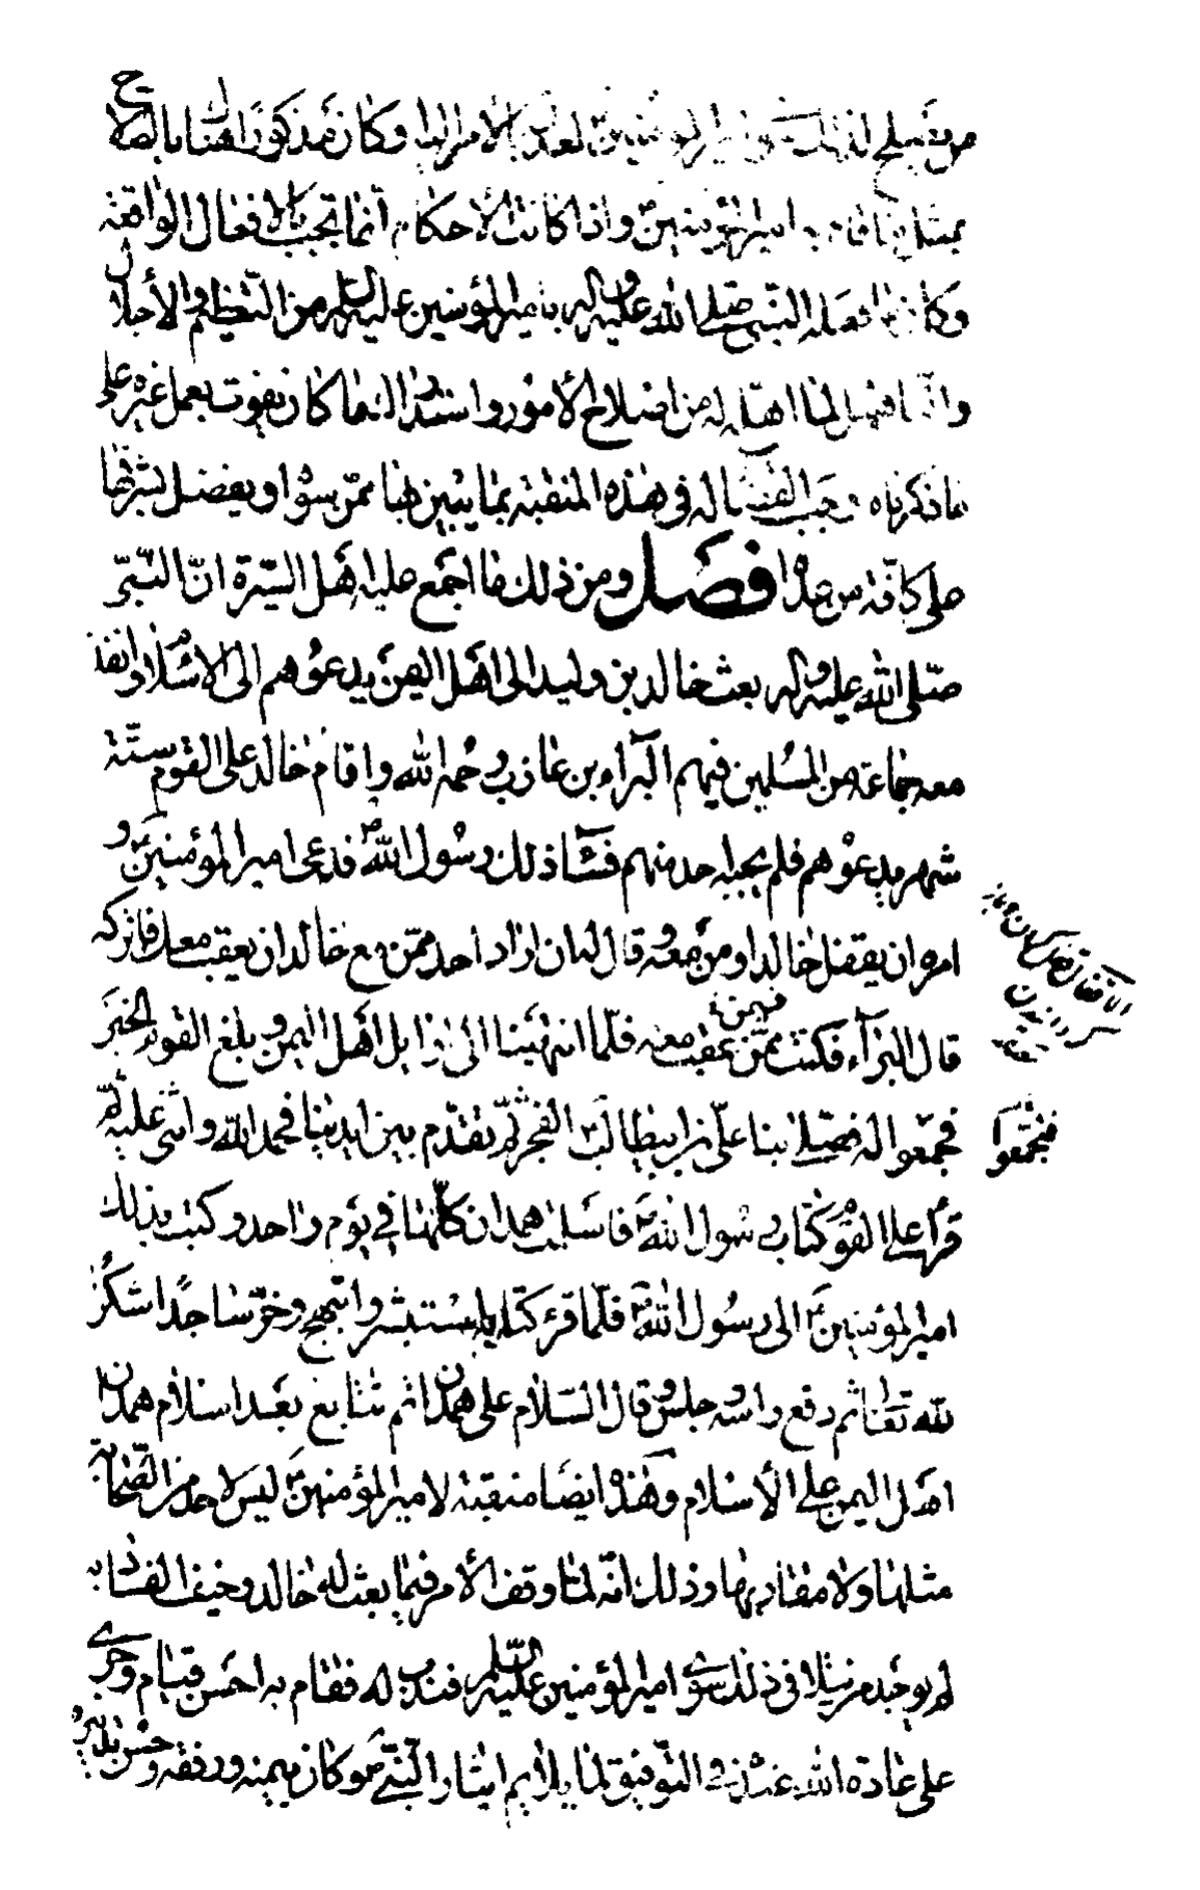 من يصلح لذلك سوى امير المؤمنين لعدل بالامر اليه وكان مذكورا هنا بالصلاح
بمثل ما قام به امير المؤمنين واذا كانت الأحكام انما تجب بالافعال الواقعة
وكان ما فعله النبي صلى الله عليه وآله بامير المؤمنين عليه السلم من التعظيم والأجلال
وانه اهل لما اهله له من اصلاح الأمور واستدراك ما كان يفوت بعمل غيره على
ما ذكرناه وجب القضاء له في هذه المنقبة بما يبين بها ممن سواه ويفضل بشرفها
على كافة من عداه فصل ومن ذلك ما اجمع عليه اهل السيرة ان النبي
صلى الله عليه وآله بعث خالد بن وليد الى اهل اليمن يدعوهم الى الاسلام وانفذ
معه جماعة من المسلمين فيهم البراء بن عازب رحمه الله واقام خالد على القوم ستة
شهر يدعوهم فلم يجبه احد منهم فساء ذلك رسول الله ص فدعى امير المؤمنين ع و
امره ان يقفل خالدا ومن معه وقال له ان اراد احد ممن مع خالد ان يعقب معك فاتركه
قال البراء فكنت ممن عقب معه فلما انتهينا الى اوايل اهل اليمن وبلغ القوم الخبر
فيمن
فجمعوا له فصلى بنا علي بن ابيطالب ع الفجر ثم تقدم بين ايدينا فحمد الله واثنى عليه ثم
فتجمعوا
قرأ على القوم كتاب رسول الله ص فاسلمت همدان كلها في يوم واحد وكتب بذلك
امير المؤمنين ع الى رسول الله ص فلما قرء كتابه استبشر وابتهج وخر ساجدا شكرا
لله تعالى ثم رفع رأسه وجلس وقال السلام على همدان ثم تتابع بعد اسلام همدان
اهل اليمن على الأسلام وهذه ايضا منقبة لامير المؤمنين ع ليس لاحد من الصحابة
مثلها ولا مقاربها وذلك انه لما وقف الأمر فيما بعث له خالد وخيف الفساد به
لم يوجد من يتلافى ذلك سوى امير المؤمنين عليه السلم فندب له فقام به احسن قيام وجرى
على عادة الله عنده في التوفيق لما يلايم ايثار النبي ص وكان بيمنه ورفقه وحسن تدبيره